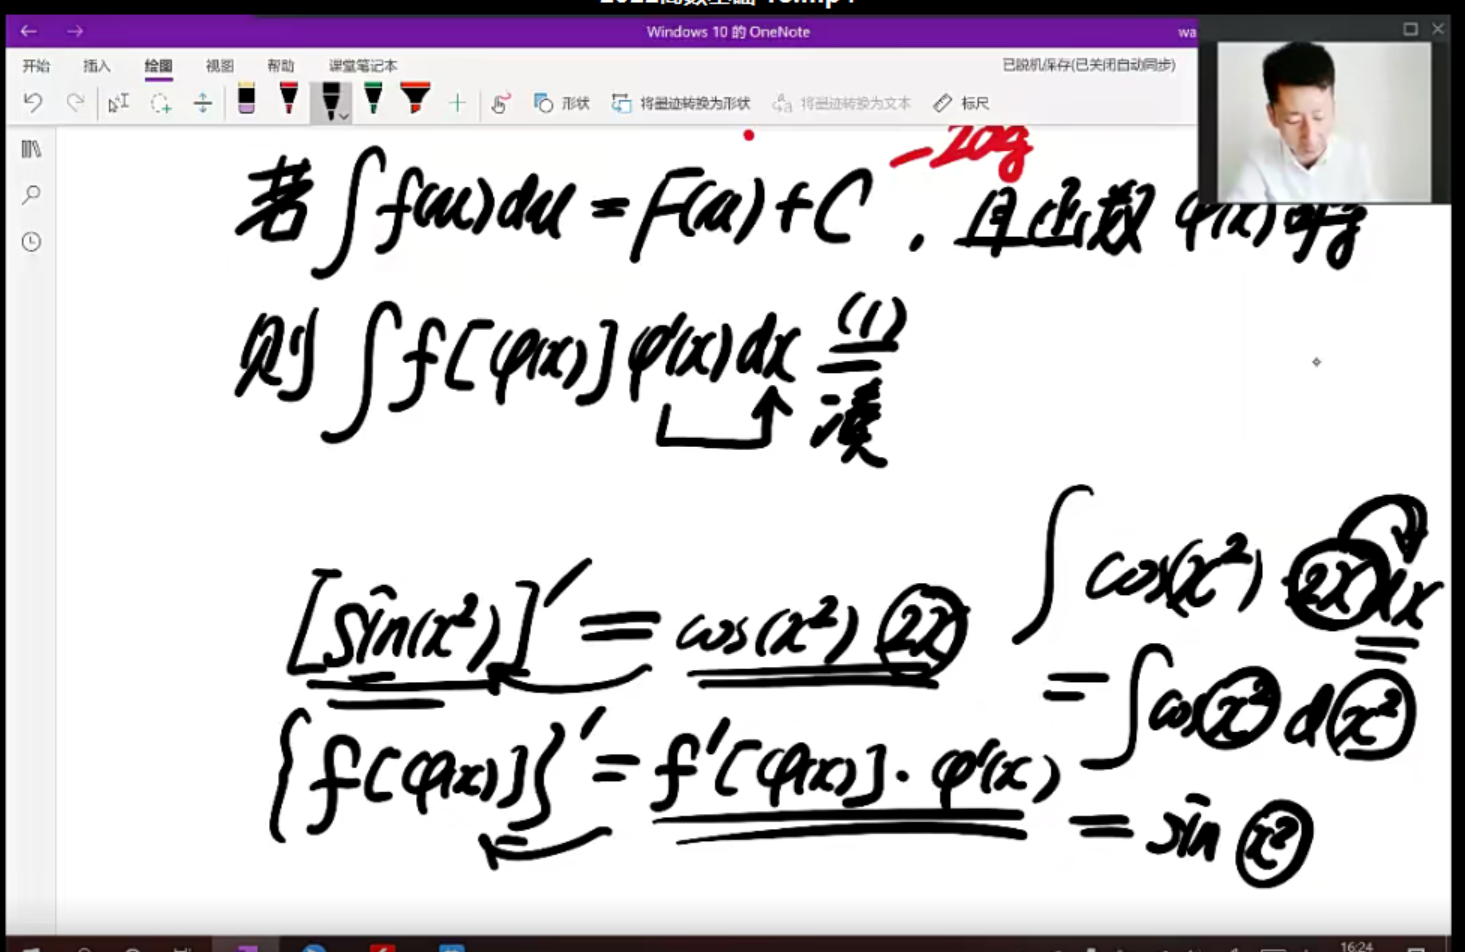 Windows 10 的 OneNote
wa
开始 插入 绘图 视图 帮助 课堂笔记本
已脱机保存(已关闭自动同步)
形状 将墨迹转换为形状 将墨迹转换为文本 标尺
若∫f(u)du=F(u)+C，且函数φ(x)可导
则∫f[φ(x)]φ'(x)dx (1)
凑
∫cos(x²)·2x dx
[sin(x²)]'=cos(x²)2x
=∫cos x² d x²
{f[φ(x)]}'=f'[φ(x)]·φ'(x)
=sin x²
16:24